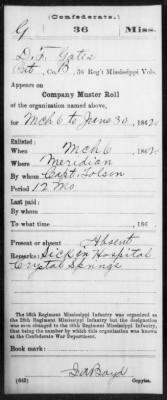 (Confederate.)
G 36 Miss.
D. F. Yates
Pvt, Co. B, 36 Reg't Mississippi Vols.
Appears on
Company Muster Roll
of the organization named above,
for Mch 6 to June 30, 1862
Enlisted:
When Mch 6, 1862
Where Meridian
By whom Capt. Tolson
Period 12 Mo
Last paid:
By whom
To what time , 186
Present or absent Absent
Remarks: Sick in Hospital
Crystal Springs
The 36th Regiment Mississippi Infantry was organized as
the
being the number by which this organization was known at
the Confederate War Department.
Book mark:
(642) Copyist.